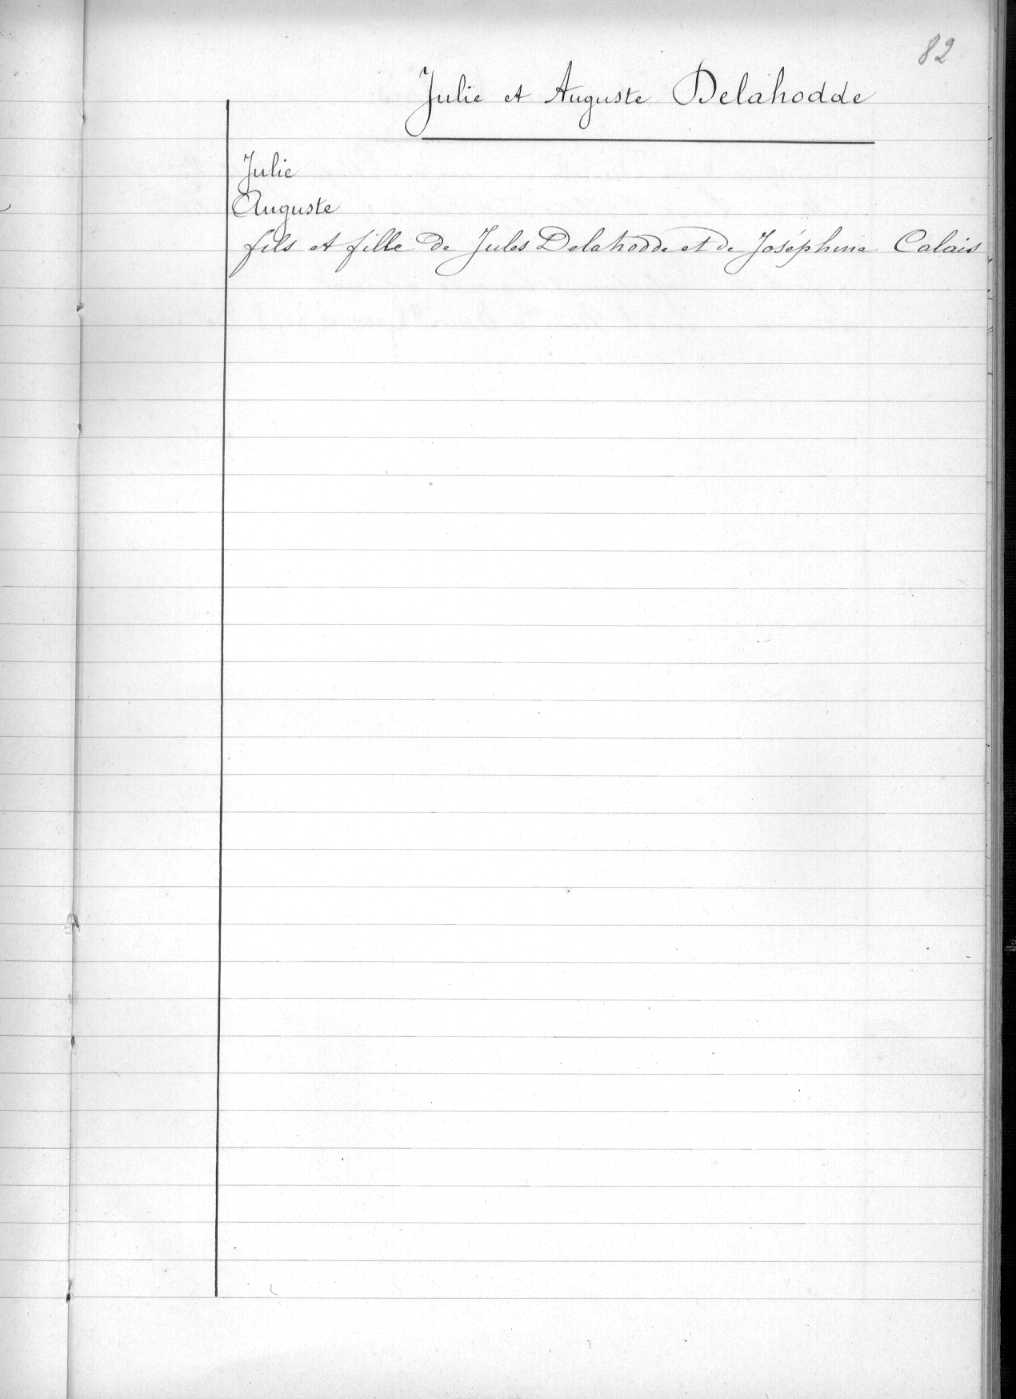 82
Julie et Auguste Delahodde
Julie
Auguste
fils et fille de Jules Delahodde et de Joséphine Calais